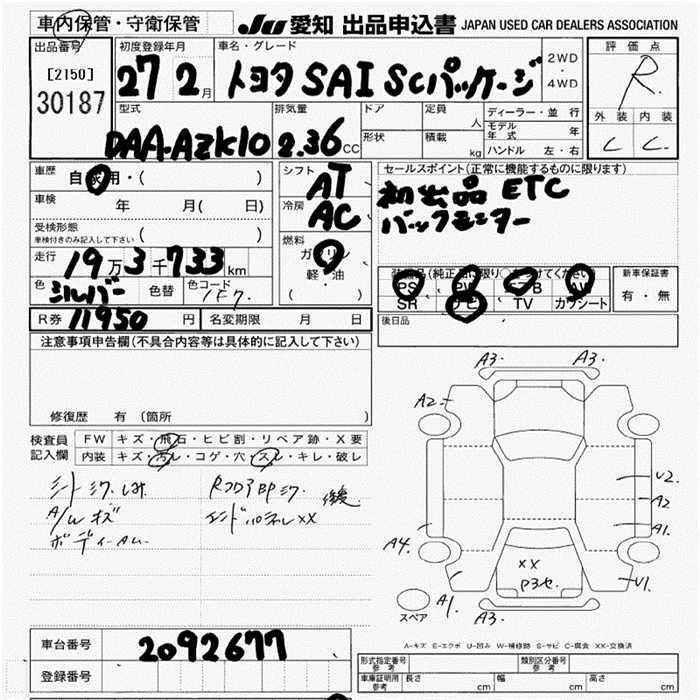 車内保管・守衛保管 JU 愛知 出品申込書 JAPAN USED CAR DEALERS ASSOCIATION
出品番号 初度登録年月 車名・グレード 2WD ・ 4WD 評価点
[2150] 27 2月 トヨタ SAI SCパッケージ R
30187 型式 排気量 ドア 定員 人 ディーラー・並行 外装 内装
形状 積載 kg モデル年式 年
DAA-AZK10 2.36cc ハンドル 左・右 C C
車歴 自家用・( ) シフト AT セールスポイント(正常に機能するものに限ります)
車検 年 月( 日) 冷房 AC 初出品 ETC
受検形態 ( ) バックモニター
車検付きのみ記入して下さい 燃料 ガソリン
走行 19万3千733km 軽・油 装備品(純正品に限り○をつけてください) 新車保証書
色 シルバー 色替 色コード 1F7 ( ) PS PW AW 有・無
SR ナビ TV カワシート
R券 11950円 名変期限 月 日 後日品
注意事項申告欄(不具合内容等は具体的に記入して下さい)
修復歴 有(箇所
検査員記入欄 FW キズ・飛石・ヒビ割・リペア跡・X要
内装 キズ・汚レ・コゲ・穴・スレ・キレ・破レ
シート シワ しみ
A/W キズ
エンドパネルXX
A3. A3.
A2
U2.
A2
A1.
A4.
XX
U1.
A1.
A3.
スペア
A-キズ E-エクボ U-凹み W-補修跡 S-サビ C-腐食 XX-交換済
車台番号 2092677
登録番号
形式指定番号 参考 類別区分番号 参考
車庫証明用 参考 長さ cm 幅 cm 高さ cm